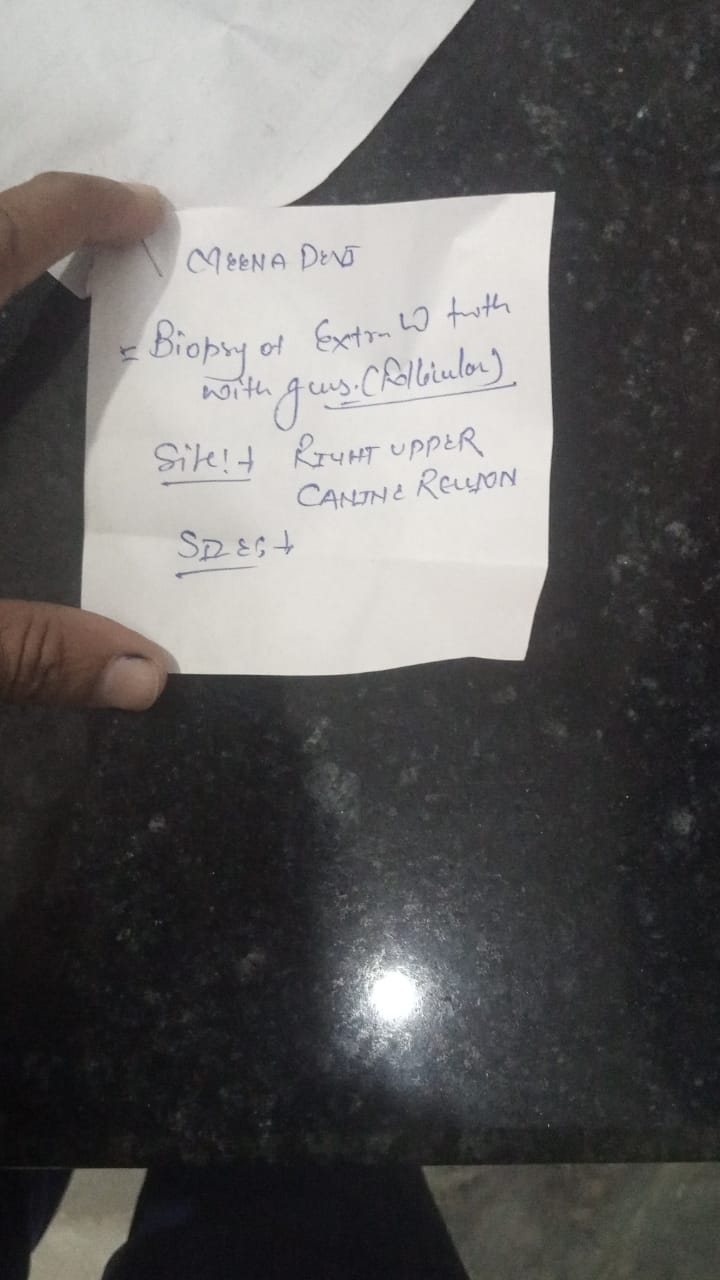 MEENA DEVI
= Biopsy of Extra tooth
with gums. (Follicular)
Site:→ RIGHT UPPER
CANINE REGION